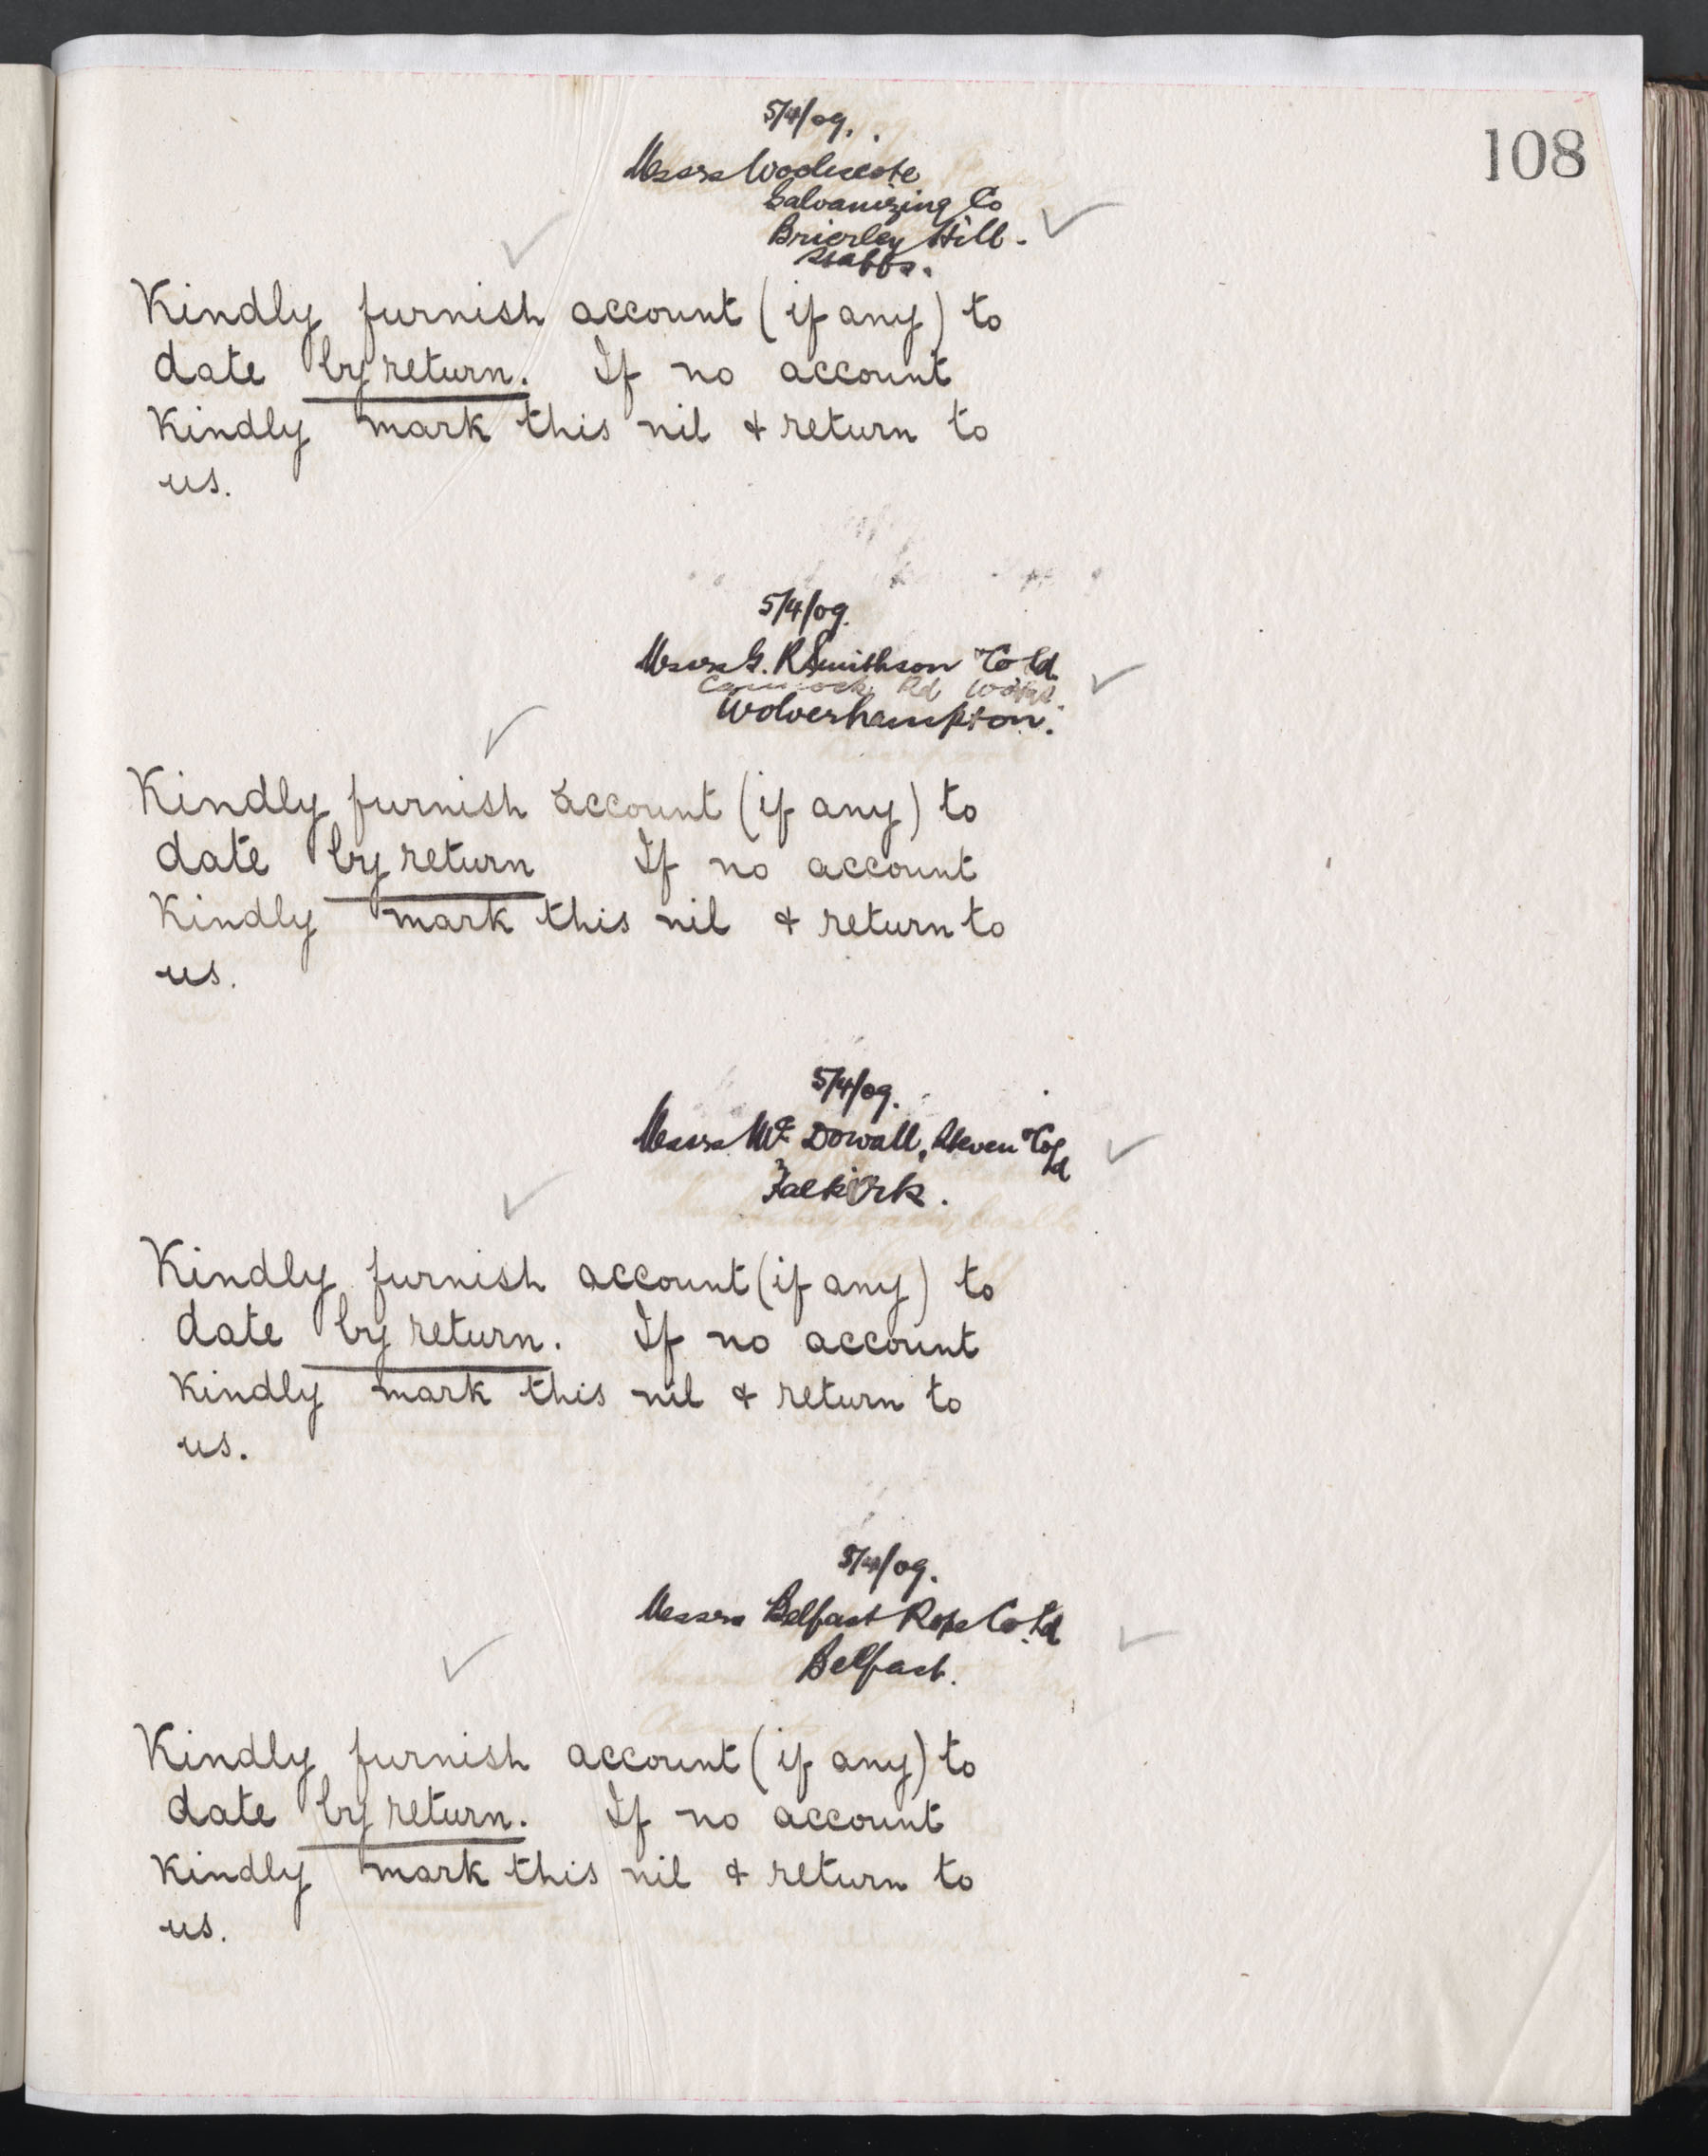 108
5/4/09.
Messrs Woodcote
Galvanizing Co
Brierley Hill.
Staffs.
Kindly furnish account (if any) to
date by return. If no account
Kindly mark this nil & return to
us.
5/4/09.
Messrs G. R Smithson & Co Ld.
Cannock Rd Works.
Wolverhampton.
Kindly furnish account (if any) to
date by return If no account
Kindly mark this nil & return to
us.
5/4/09.
Messrs Mc Dowall, Steven & Co Ld
Falkirk.
Kindly furnish account (if any) to
date by return. If no account
Kindly mark this nil & return to
us.
5/4/09.
Messrs Belfast Rope Co. Ld
Belfast.
Kindly furnish account (if any) to
date by return. If no account
Kindly mark this nil & return to
us.